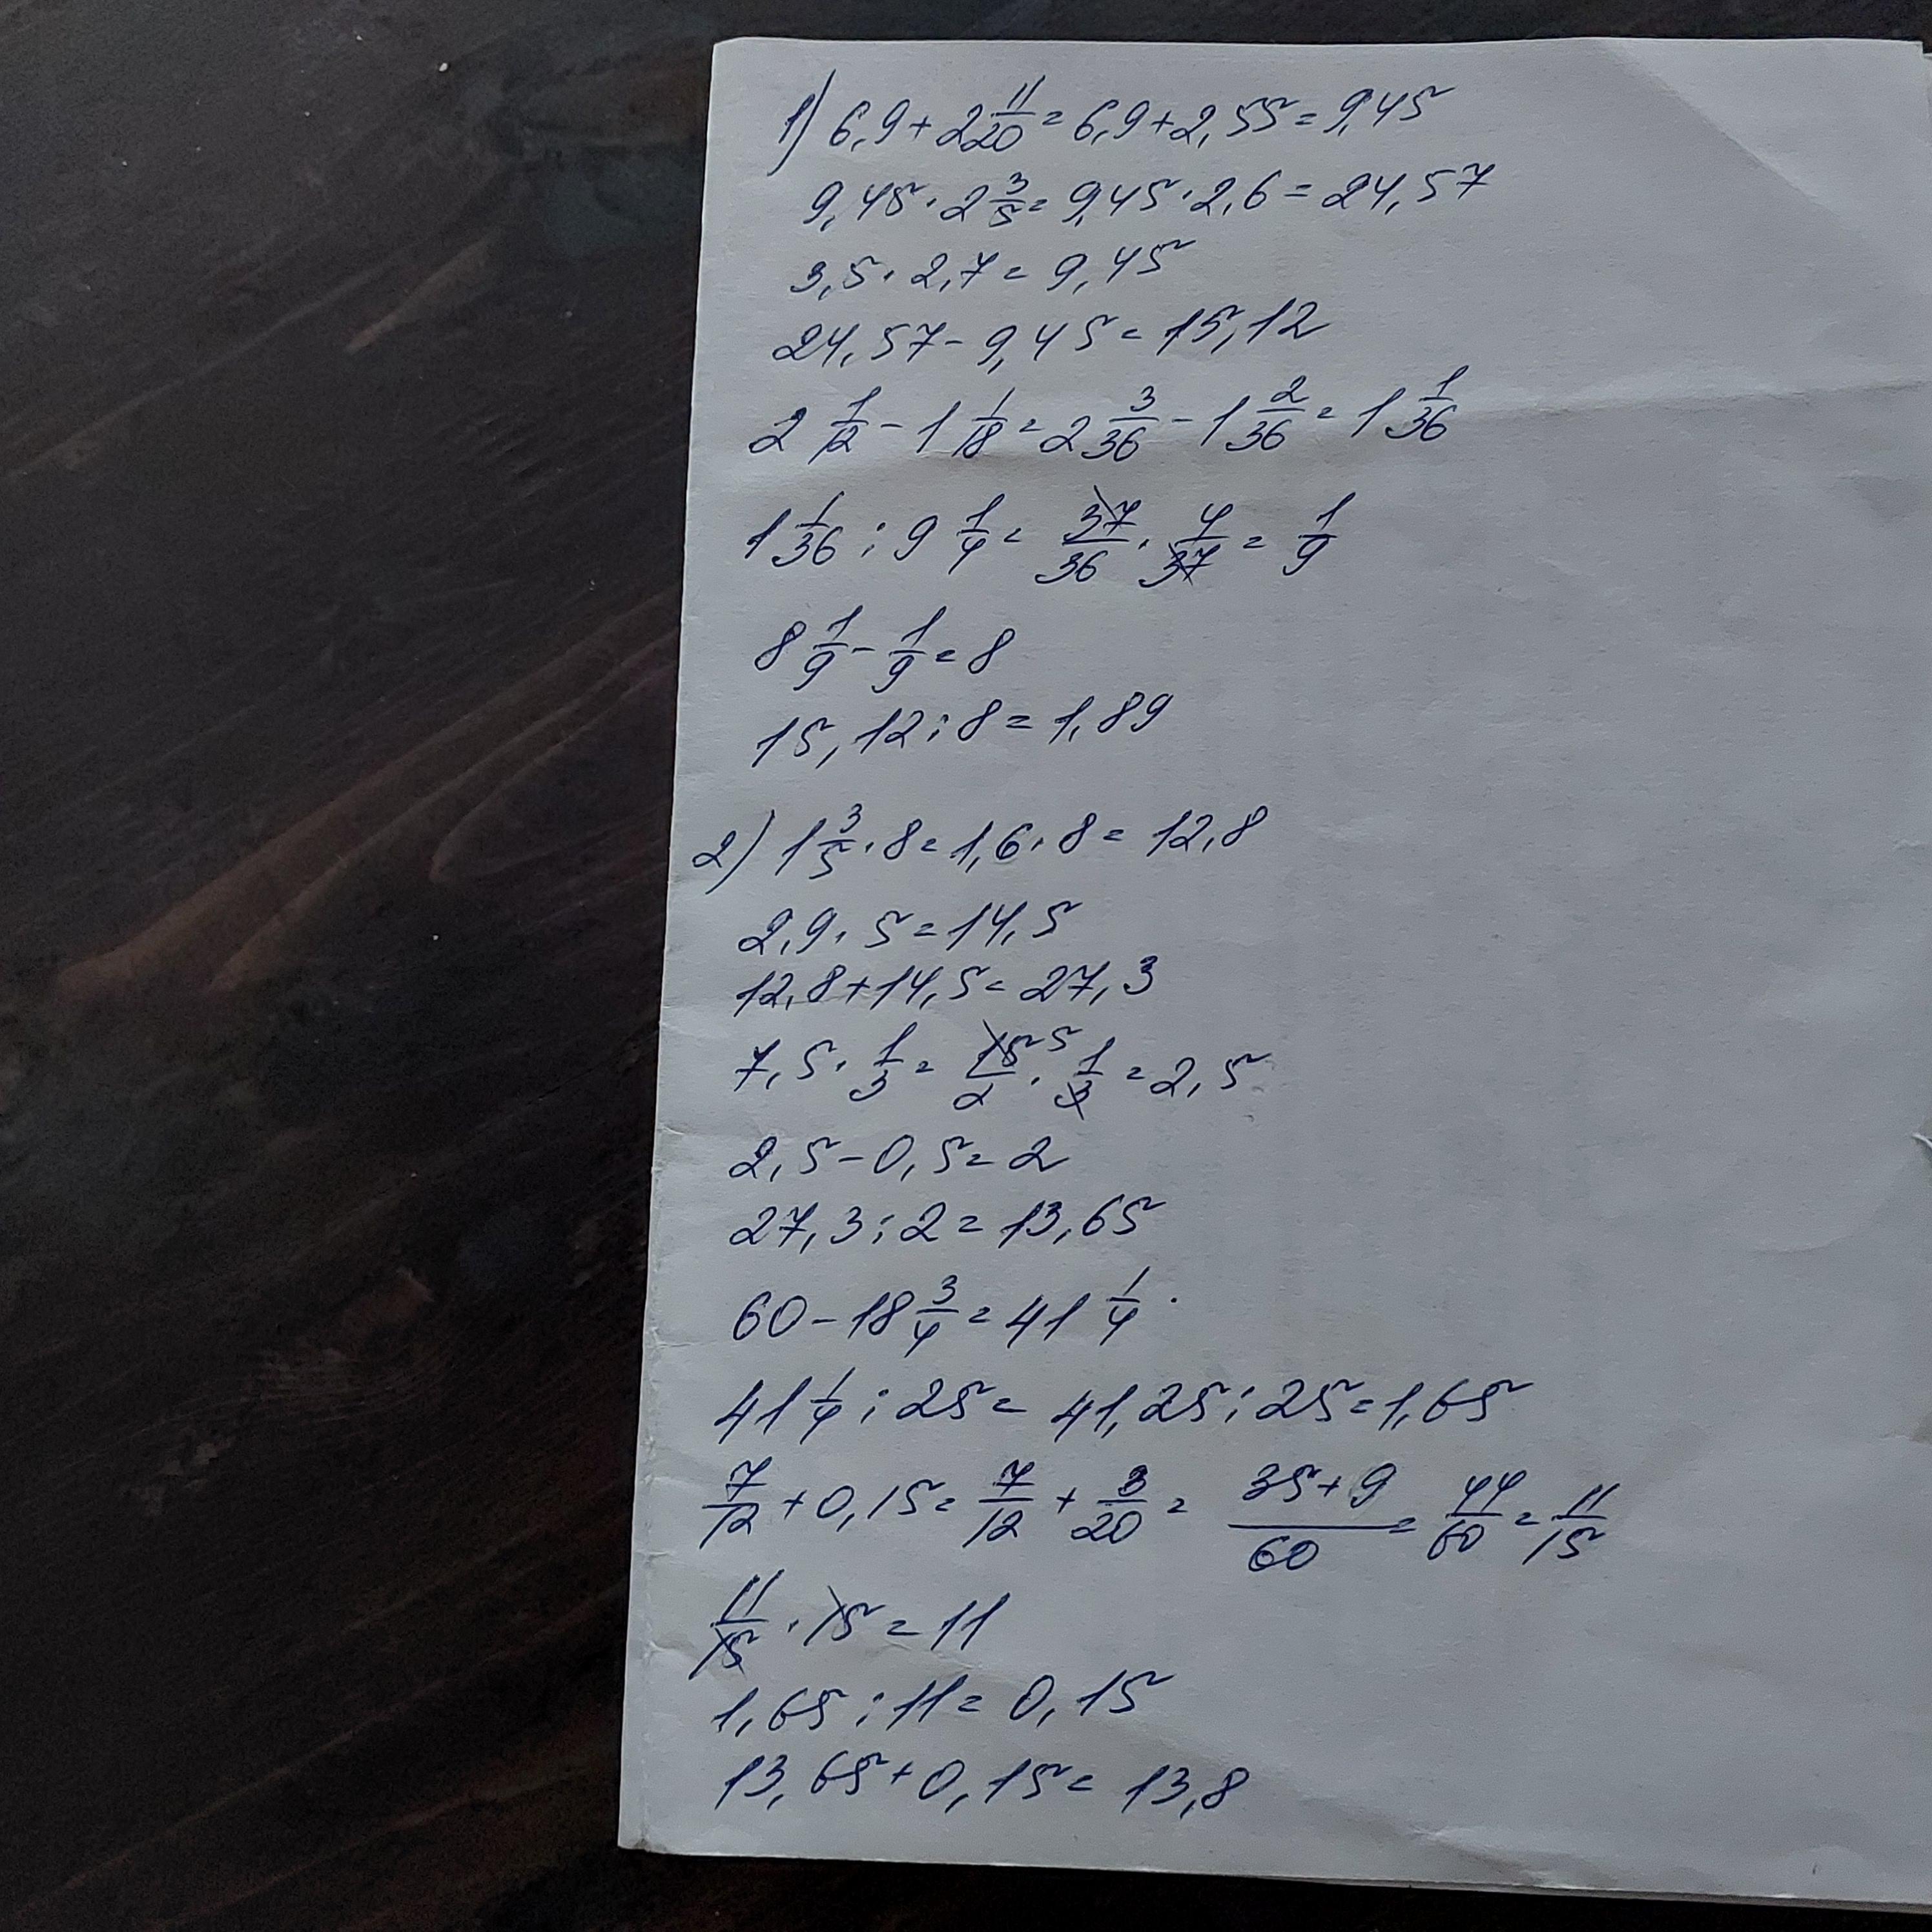 1) 6,9+2 11/20=6,9+2,55=9,45
9,45·2 3/5=9,45·2,6=24,57
3,5·2,7=9,45
24,57-9,45=15,12
2 1/12-1 1/18=2 3/36-1 2/36=1 1/36
1 1/36:9 1/4=37/36·4/37=1/9
8 1/9-1/9=8
15,12:8=1,89
2) 1 3/5·8=1,6·8=12,8
2,9·5=14,5
12,8+14,5=27,3
7,5·1/3=15 5/2·1/3=2,5
2,5-0,5=2
27,3:2=13,65
60-18 3/4=41 1/4
41 1/4:25=41,25:25=1,65
7/12+0,15=7/12+3/20=35+9/60=44/60=11/15
11/15·15=11
1,65:11=0,15
13,65+0,15=13,8